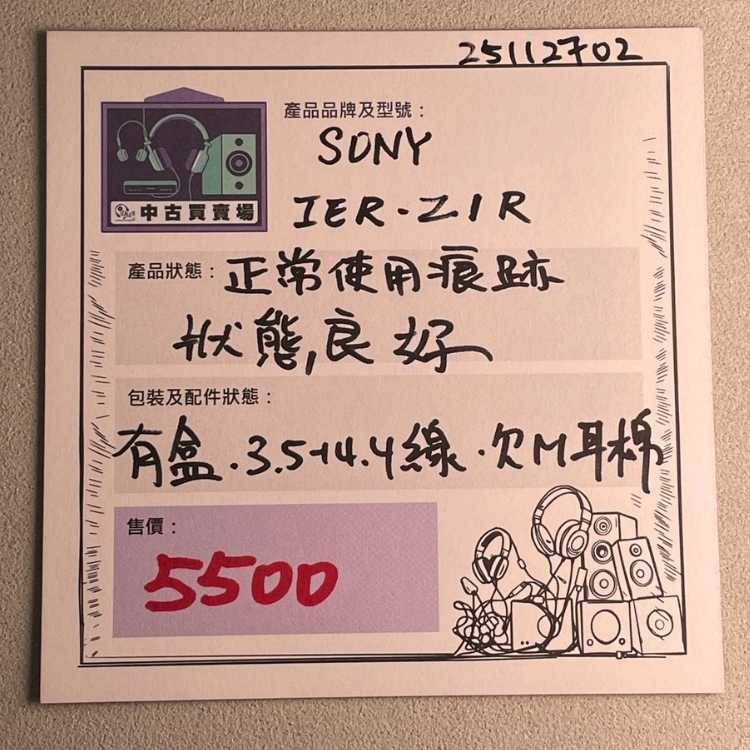 25112702
中古買賣場
產品品牌及型號：
SONY
IER-Z1R
產品狀態：正常使用痕跡
狀態,良好
包裝及配件狀態：
有盒.3.5+4.4線.欠M耳棉
售價：
5500